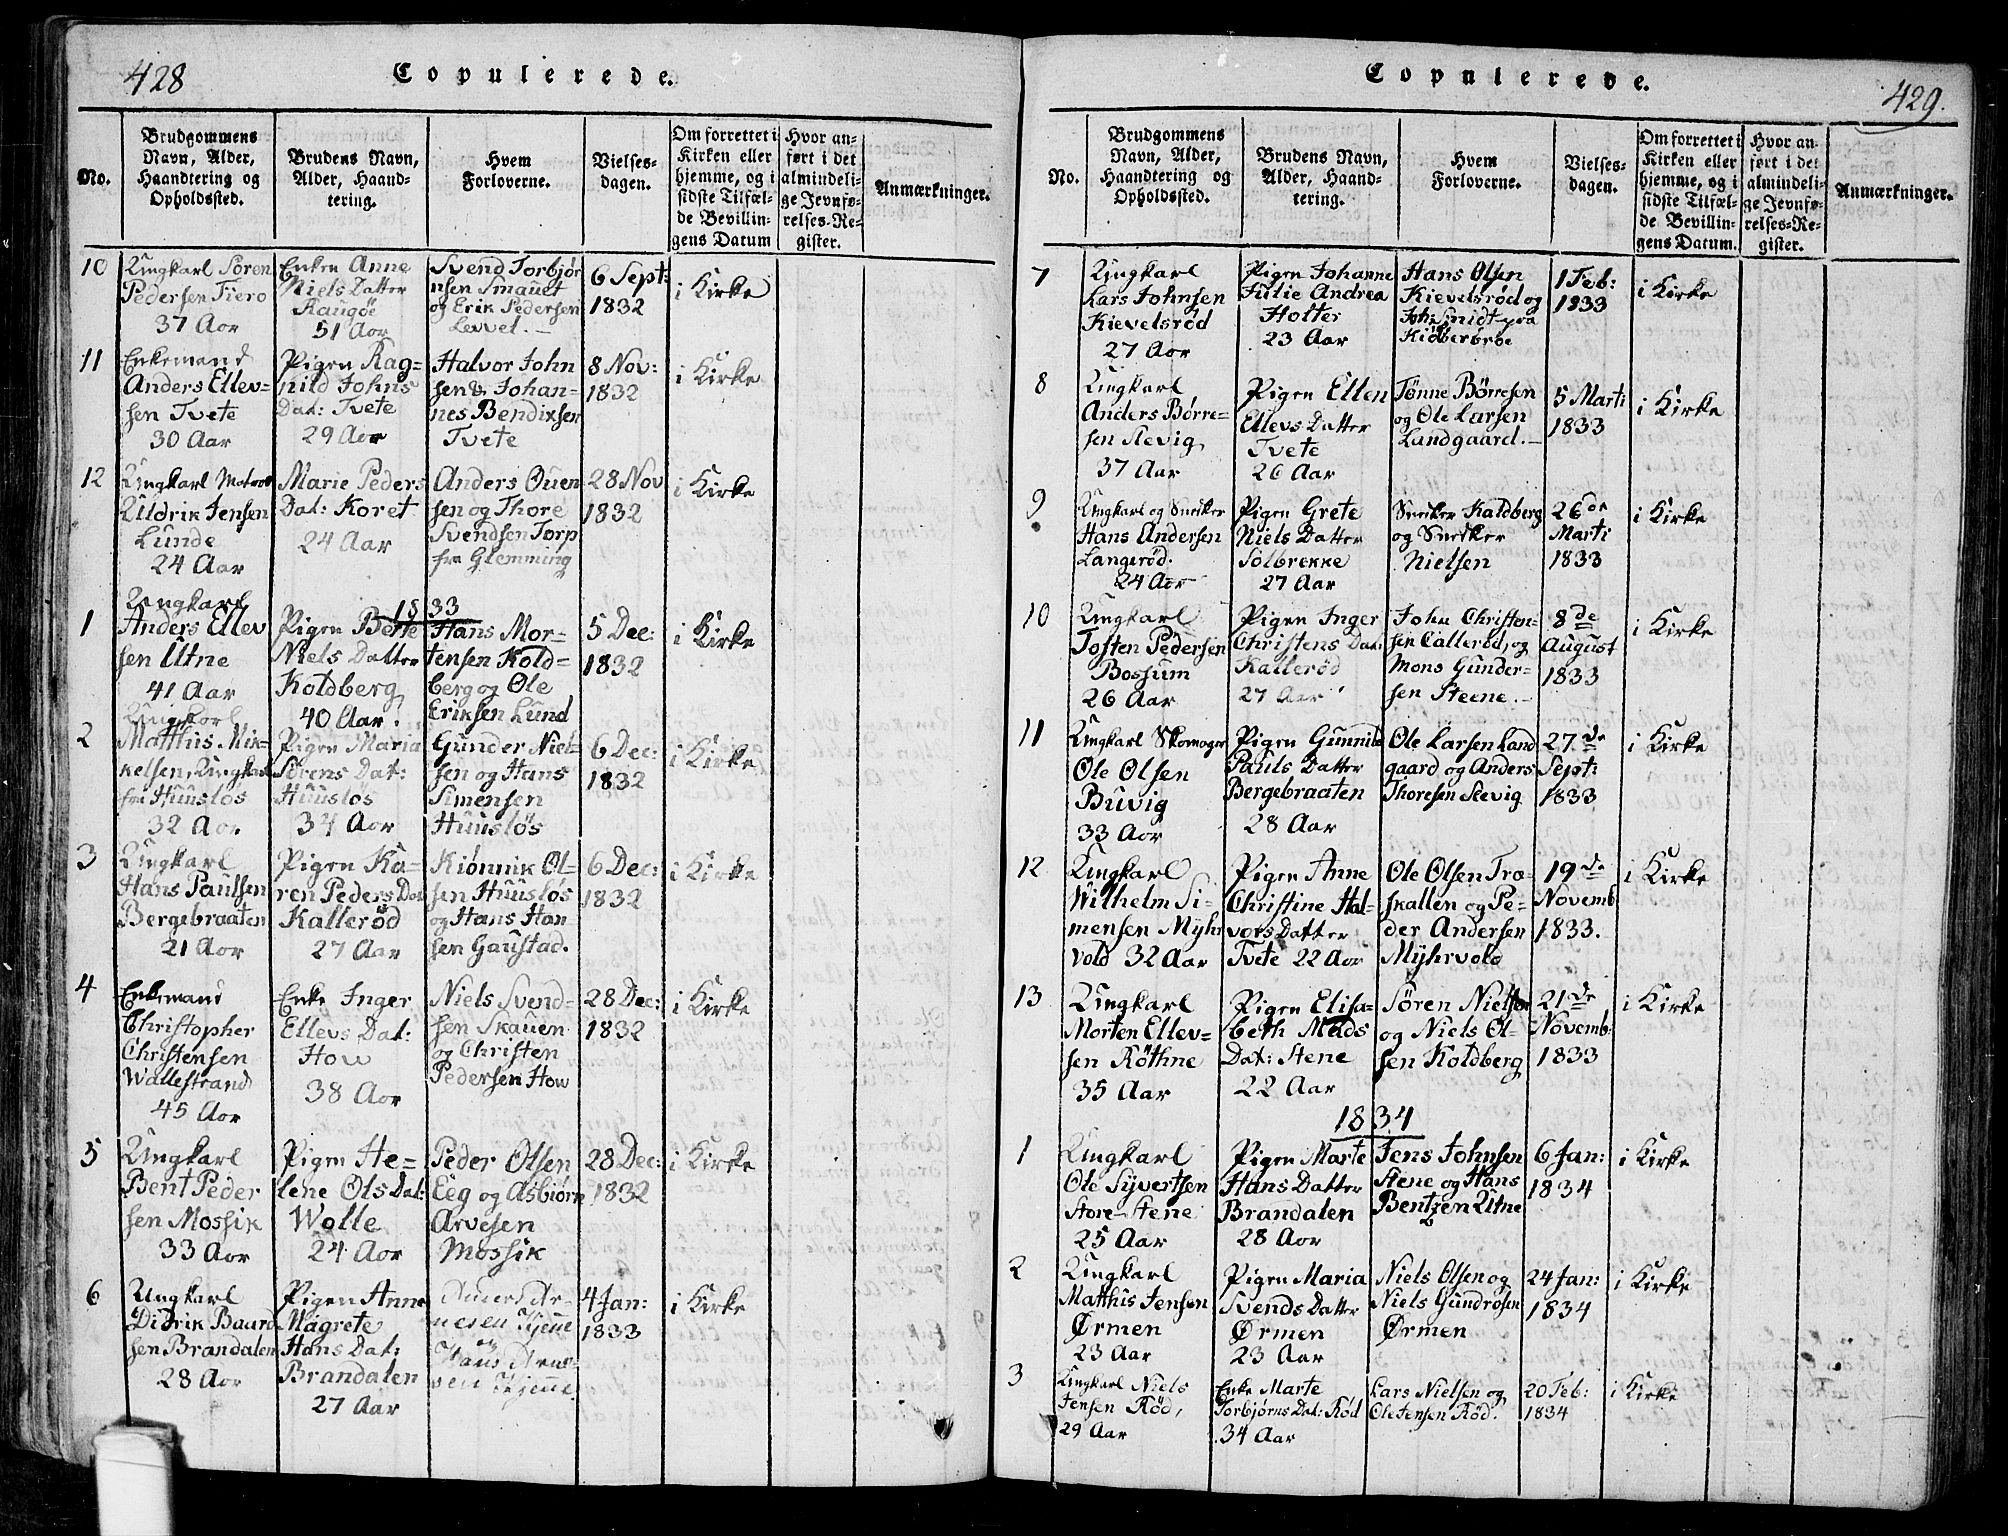 428
Copulerede.
No.
Brudgommens
Navn, Alder,
Haandtering og
Opholdssted.
Brudens Navn,
Alder, Haand-
tering.
Hvem
Forloverne.
Vielses-
dagen.
Om forrettet i
Kirken eller
hjemme, og i
sidste Tilfæl-
de Bevillin-
gens Datum
Hvor an-
ført i det
almindeli-
ge Jevnfø-
relses-Re-
gister.
Anmærkninger.
10
Ungkarl Søren
Pedersen Tiero
37 Aar
Enken Anne
Niels Datter
Raugøe
51 Aar
Svend Torbjør
nsen Smauet
og Erik Pedersen
Levvel.
6 Sept:
1832
i Kirke
11
Enkemand
Anders Ellev-
sen Tvete
30 Aar
Pigen Rag-
nild Johns
Dat: Tvete
29 Aar
Halvor John
sen & Johan-
nes Bendixsen
Tvete
8 Nov:
1832
i Kirke
12
Ungkarl Matros
Uldrik Jensen
Lunde
24 Aar
Marie Peders
Dat: Koret
24 Aar
Anders Ouen
sen og Thore
Svendsen Torp
fra Glemming
28 Nov
1832
i Kirke
1833
1
Ungkarl
Anders Ellev
sen Utne
41 Aar
Pigen Bette
Niels Datter
Koldberg
40 Aar.
Hans Mor-
tensen Kold-
berg og Ole
Eriksen Lund
5 Dec:
1832
i Kirke
2
Ungkarl
Matthis Mik-
kelsen, Ungkarl
fra Huusløs
32 Aar
Pigen Maria
Sörens Dat:
Huusløs
34 Aar
Gunder Niel-
sen og Hans
Simensen
Huusløs
6 Dec:
1832
i Kirke
3
Ungkarl
Hans Paulsen
Bergebraaten
21 Aar
Pigen Ka-
ren Peders Dat
Kallerød
27 Aar
Kiönnik Ol-
sen Huusløs
og Hans Han
sen Gaustad.
6 Dec:
1832
i Kirke
4
Enkemand
Christopher
Christensen
Wallestrand
45 Aar
Enke Inger
Ellevs Dat:
How
38 Aar
Niels Svend-
sen Skauen
og Christen
Pedersen How
28 Dec:
1832
i Kirke
5
Ungkarl
Bent Peder
sen Mossik
33 Aar
Pigen He-
lene Ols Dat:
Wolle
24 Aar
Peder Olsen
Eeg og Asbiørn
Arvesen
Mossik
28 Dec:
1832
i Kirke
6
Ungkarl
Didrik Baard
sen Brandalen
28 Aar
Pigen Anne
Magrete
Hans Dat:
Brandalen
27 Aar
4 Jan:
1833
i Kirke
Copulerede.
429.
No.
Brudgommens
Navn, Alder,
Haandtering og
Opholdssted.
Brudens Navn,
Alder, Haand-
tering.
Hvem
Forloverne.
Vielses-
dagen.
Om forrettet i
Kirken eller
hjemme, og i
sidste Tilfæl-
de Bevillin-
gens Datum.
Hvor an-
ført i det
almindeli-
ge Jevnfø-
relses-Re-
gister.
Anmærkninger.
7
Ungkarl
Lars Johnsen
Kievelsrød
27 Aar
Pigen Johanne
Julie Andrea
Holter
23 Aar
Hans Olsen
Kievelsrød og
1 Feb:
1833
i Kirke
8
Ungkarl
Anders Børre-
sen
37 Aar
Pigen Ellen
Ellevs Datter
Tvete
26 Aar
Tønne Børresen
og Ole Larsen
Landgaard.
5 Mart:
1833
i Kirke
9
Ungkarl og Snedker
Hans Andersen
Langerød.
24 Aar
Pigen Grete
Niels Datter
Solbrekke
27 Aar
Snedker Kaldberg
og Snedker
Nielsen
26de
Marti
1833
i Kirke
10
Ungkarl
Tosten Pedersen
Bossum
26 Aar
Pigen Inger
Christens Dat:
Kallerød
27 Aar
John Christen-
sen Callerød, og
Mons Gunder-
sen Steene.
8de
August
1833
i Kirke
11
Ungkarl Skomager
Ole Olsen
Buvig
33 Aar
Pigen Gunnild
Pauls Datter
Bergebraaten
28 Aar
Ole Larsen Land
gaard og Anders
Thoresen Seevig
27de
Sept:
1833
i Kirke
12
Ungkarl
Wilhelm Si-
mensen Myhr
vold 32 Aar
Pigen Anne
Christine Hal-
vors Datter
Tvete 22 Aar
Ole Olsen Tra-
skallen og Pe-
der Andersen
Myhrvold
19de
Novemb
1833.
i Kirke
13
Ungkarl
Morten Ellev-
sen Röthne
35 Aar
Pigen Elisa-
beth Mads
Dat: Stene
22 Aar
Sören Nielsen
og Niels Ol-
sen Koldberg
21de
Novemb:
1833
i Kirke
1834
1
Ungkarl
Ole Syvertsen
Store-Stene
25 Aar
Pigen Marte
Hans Datter
Brandalen
28 Aar
Jens Johnsen
Stene og Hans
Bentzen Utne
6 Jan:
1834
i Kirke
2
Ungkarl
Matthis Jensen
Ørmen
23 Aar
Pigen Maria
Svends Datter
Ørmen
23 Aar
Niels Olsen og
Niels Gundrosen
Ørmen
24 Jan:
1834
i Kirke
3
Ungkarl Niels
Jensen Rød,
29 Aar
Enke Marte
Torbjørns Dat: Rød
34 Aar
Lars Nielsen og
Ole Jensen Rød.
20 Feb:
1834
i Kirke